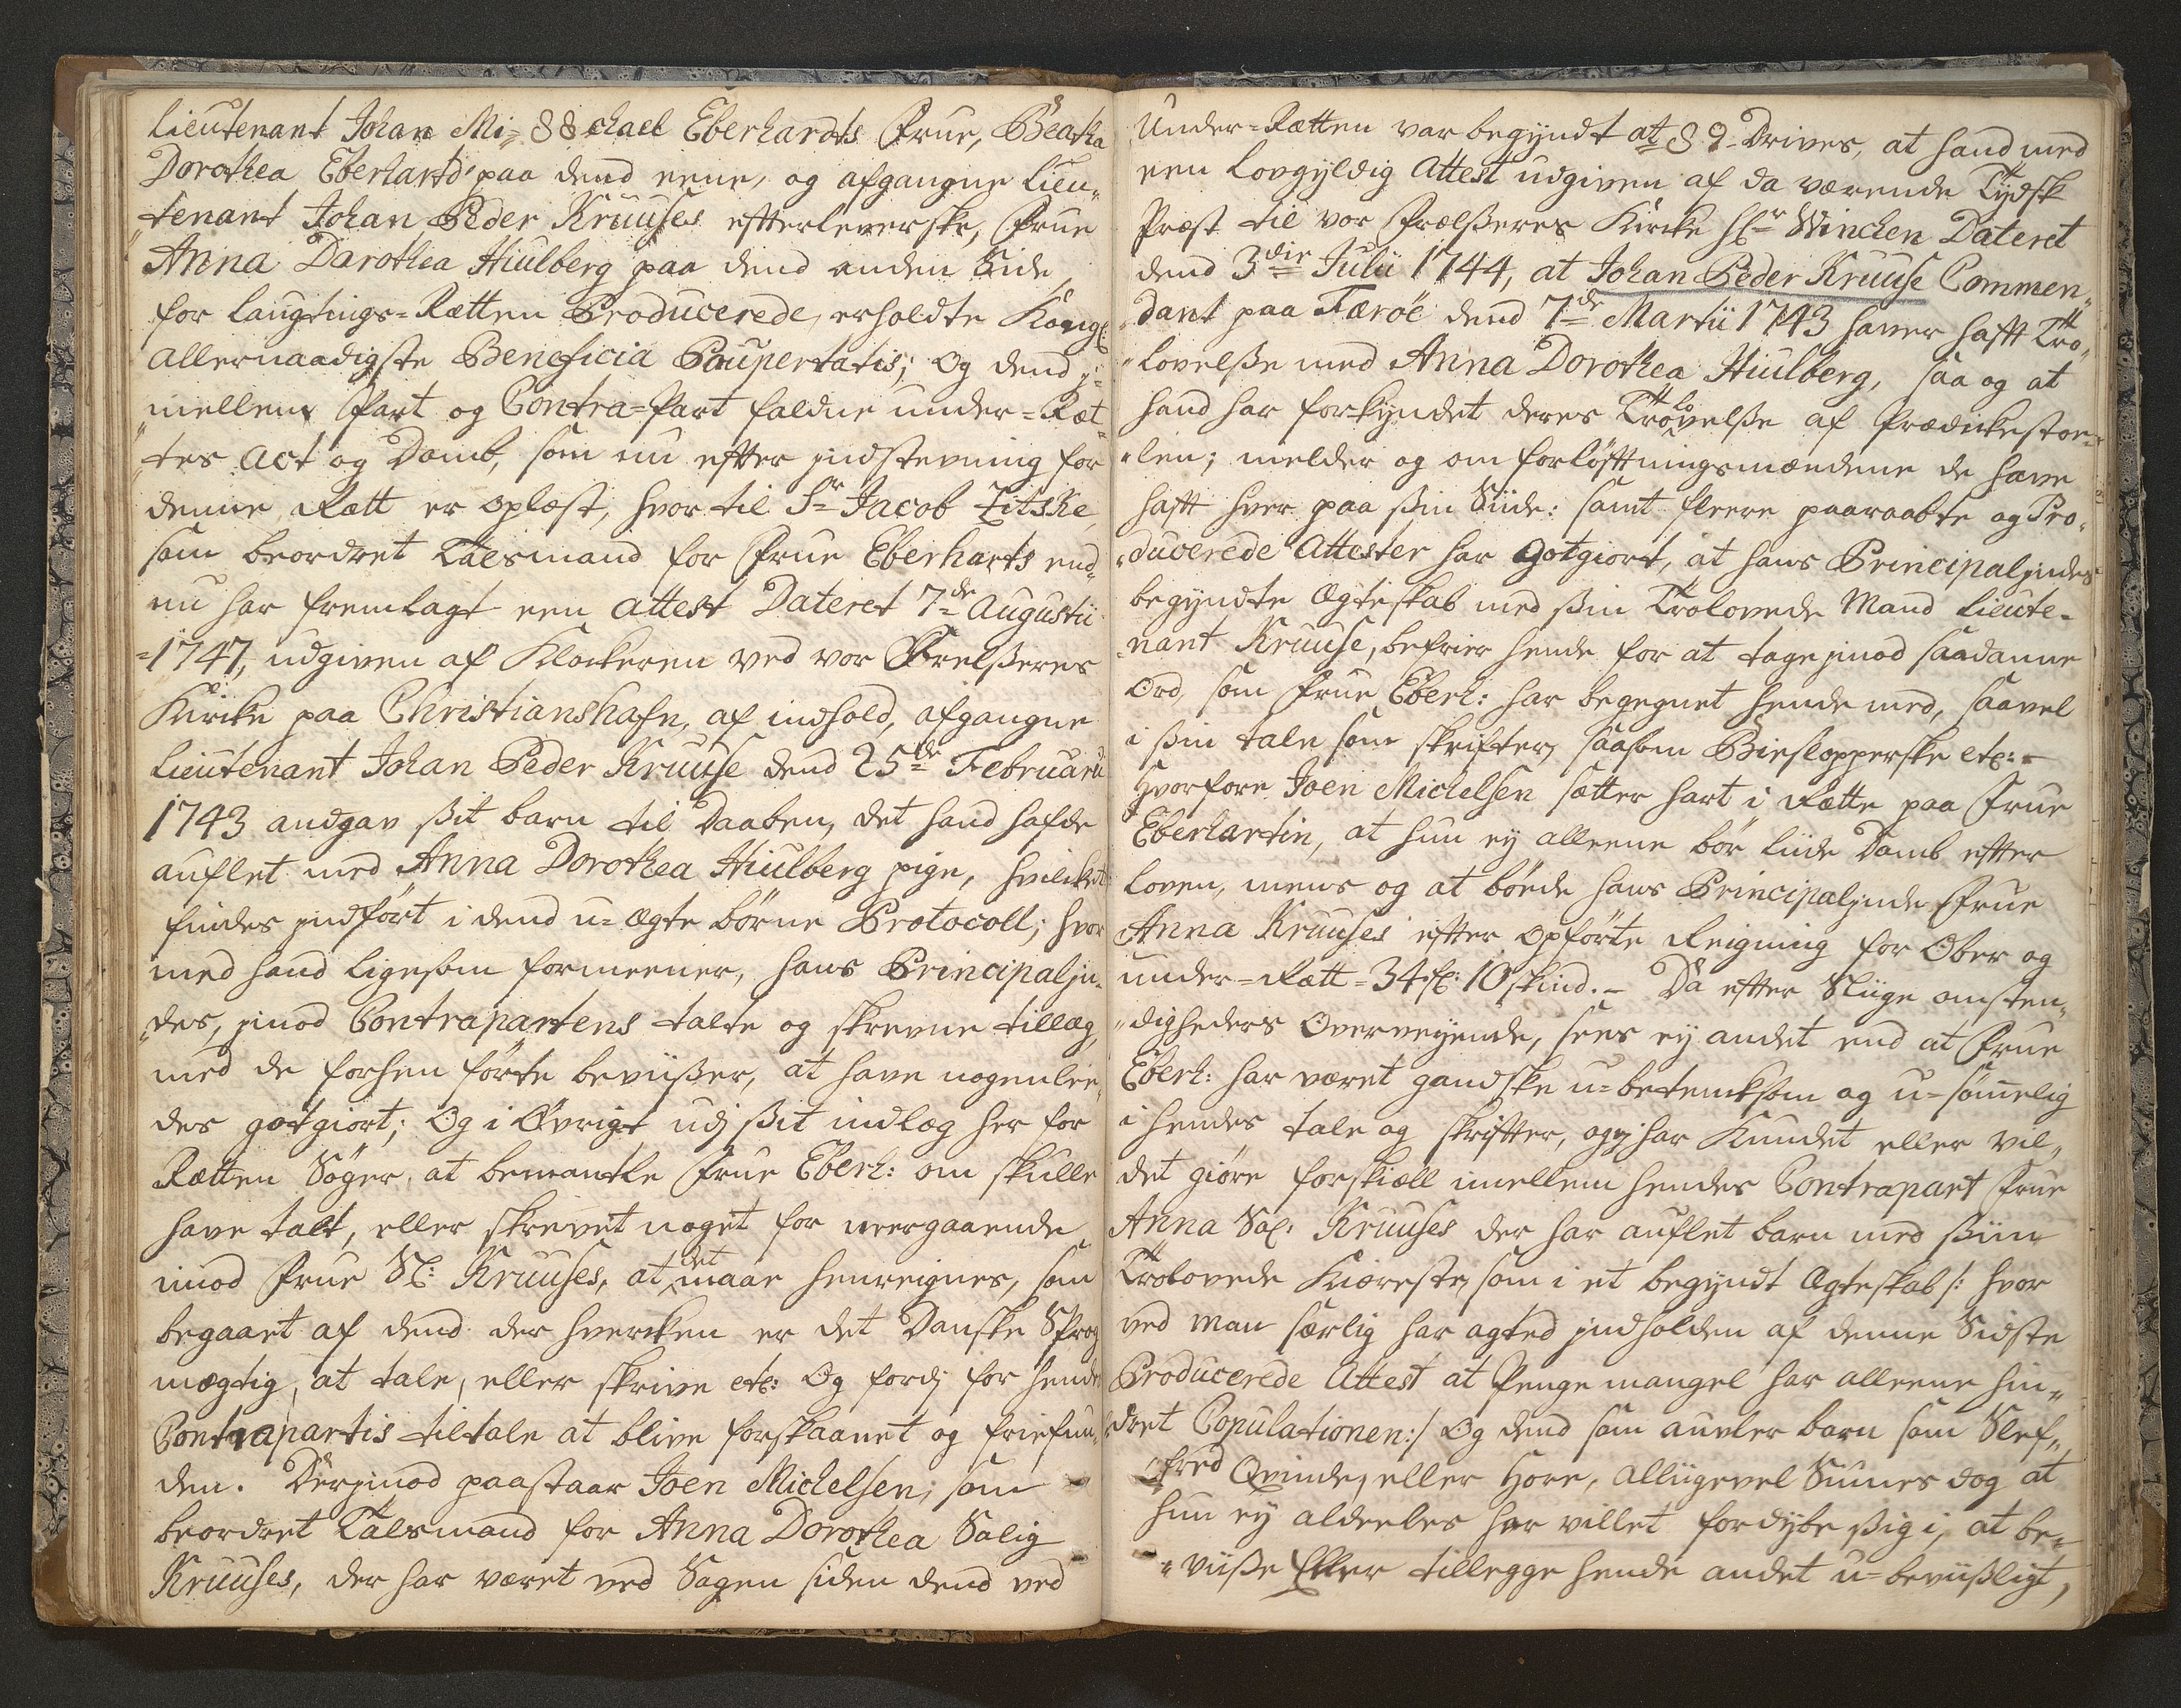 Lieutenant Johan Mi= 88 chael Eberhardts Frue, Beatha
Dorothea Eberhartd paa dend eene, og afgangne Lieu=
tenant Johan Peder Kruuses efterleverske, Frue
Anna Darothea Hiulberg paa dend anden Side,
for Laugtings=Rætten Producerede, erholdte Kongl
allernaadigste Beneficia Paupertatis; Og dend j=
mellem Part og Contra=Part faldne under=Ræt=
tes Act og Domb, som nu efter jndstevning for
denne Rætt er oplæst, hvor til Sr Jacob Zitske,
som beordret Talsmand for Frue Eberharts end=
nu har fremlagt een Attest Dateret 7de Augustii
=1747, udgiven af Klockeren ved vor Frelßeres
Kircke paa Christianshafn, af indhold, afgangne
Lieutenant Johan Peder Kruuse dend 25de Februarii
1743 andgav ßit barn til Daaben, det hand hafde
auflet med Anna Dorothea Hiulberg pige, hvilcket
findes jndført i dend u=ægte børne Protocoll; hvor
med hand ligesom formeener, hans Principaljn=
des, jmod Contrapartens talte og skrevne tillæg,
med de forhen førte beviißer, at have nogenlee=
des gotgiort; Og i Øvrigt udj ßit indlæg her for
Rætten Søger, at bemantle Frue Eberh: om skulle
have talt, eller skrevet noget for nergaaende
imod Frue Sl: Kruuses, at det maae henreignes, som
begaaet af dend der hvercken er det Danske Sprog
mægtig, at tale, eller skrive etc: Og fordj for hendes
Contrapartis tiltale at blive forskaanet og friefun=
den. Derjmod paastaar Joen Michelsen, som
beordret Talsmand for Anna Dorothea Salig
Kruuses, der har været ved Sagen siden dend ved
Under=Rætten var begyndt at 89 Drives, at hand med
een Lovgyldig Attest udgiven af da værende Tydsk
Præst til vor Frælßeres Kircke Hr Winchen Dateret
dend 3die Julii 1744, at Johan Peder Kruuse Commen=
dant paa Færöe dend 7de Martii 1743 haver haft Tro=
lovelße med Anna Dorothea Hiulberg, saa og at
hand har forkyndet deres Trolovelße af Prædickestoe=
len; melder og om forløftningsmændene de have
haft hver paa ßin Siide: samt fleere paaraabte og Pro=
ducerede Attester har Gotgiort, at hans Principaljndes
begyndte Ægteskab med ßin Trolovede Mand Lieute=
nant Kruuse, befrier hende for at tage jmod saadanne
Ord, som Frue Eberh: har begegnet hende med, saavel
i ßin tale som skrifter, saasom Bieslopperske etc:
Hvorfore Joen Michelsen sætter hart i Rætte paa Frue
Eberhartin, at hun ey alleene bør Liide Domb efter
Loven, mens og at bøede hans Principaljnde Frue
Anna Kruuses efter opførte Reigning for Ober og
under=Rætt=34 fl: 10 skind. Da efter Sliige omsten=
digheders Overveyende, sees ey andet end at Frue
Eberh: har været gandske u=betencksom og u=sømelig
i hendes tale og skrifter, og ej har Kundet eller vil=
det giøre forskiæll imellem hendes Contrapart Frue
Anna Sal: Kruuses der har auflet barn med ßiin
Trolovede Kiæreste, som i et begyndt Ægteskab /: hvor
ved man særlig har agted jndholden af denne Sidste
Producerede Attest, at Penge mangel har alleene hin=
dret Copulationen:/ Og dend som aufler barn som Slef=
fred Qvinde, eller Hore, alliigevel Siunes dog at
hun ey aldeeles har villet fordybe ßig i, at be=
viiße Eller tillegge hende andet u=beviißligt,